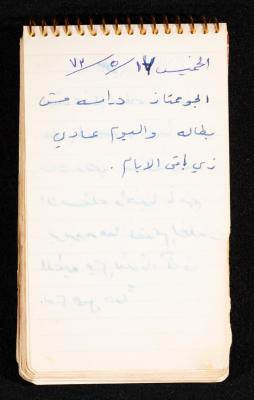 الخميس ١٧/٥/٧٣
الجو ممتاز دراسه مش
بطاله واليوم عادي
زي باقي الايام.